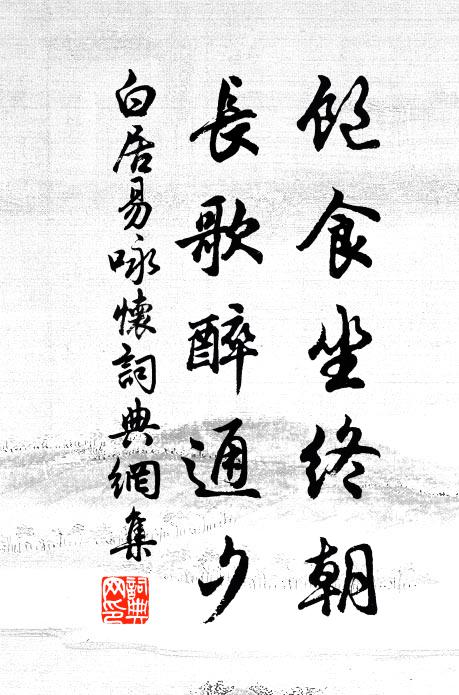 飽食坐終朝
長歌醉通夕
白居易咏懷詞典網集
詞典網印